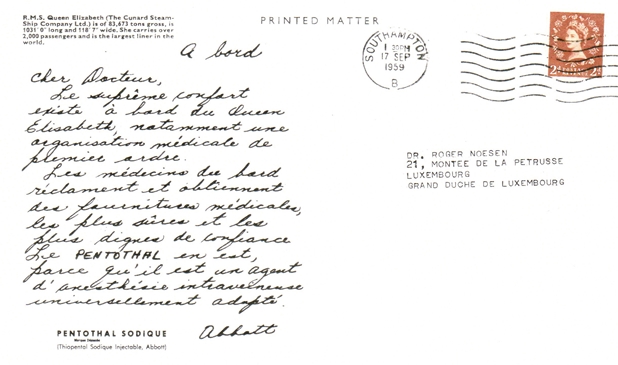 R.M.S. Queen Elizabeth (The Cunard Steam-
Ship Company Ltd.) is of 83,673 tons gross, is
1031' 0" long and 118' 7" wide. She carries over
2,000 passengers and is the largest liner in the
world.
PRINTED MATTER
A bord
Cher Docteur,
Le suprême confort
existe à bord du Queen
Elisabeth, notamment une
organisation médicale de
premier ordre.
Les médecins du bord
réclament et obtiennent
des fournitures médicales,
les plus sûres et les
plus dignes de confiance
Le PENTOTHAL en est,
parce qu'il est un agent
d'anesthésie intraveineuse
universellement adopté.
Abbott
PENTOTHAL SODIQUE
Marque Déposée
(Thiopental Sodique Injectable, Abbott)
SOUTHAMPTON
1 30PM
17 SEP
1959
B
DR. ROGER NOESEN
21, MONTEE DE LA PETRUSSE
LUXEMBOURG
GRAND DUCHE DE LUXEMBOURG